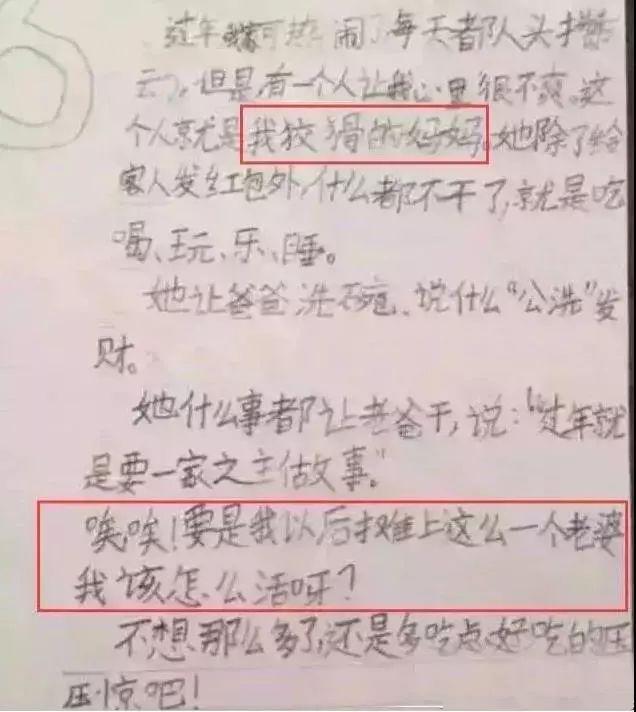 过年我家可热闹了每天都人头攒
云),但是,有一个人让我心里很不爽。这
个人就是我狡猾的妈妈。她除了给
客人发红包外,什么都不干了,就是吃
喝、玩、乐、睡。
她让爸爸洗碗,说什么“公洗”发
财。
她什么事都让老爸干,说:“过年就
是要一家之主做故事。”
唉,唉!要是我以后摊上这么一个老婆
我该怎么活呀?
不想那么多了,还是多吃点好吃的压
压惊吧!